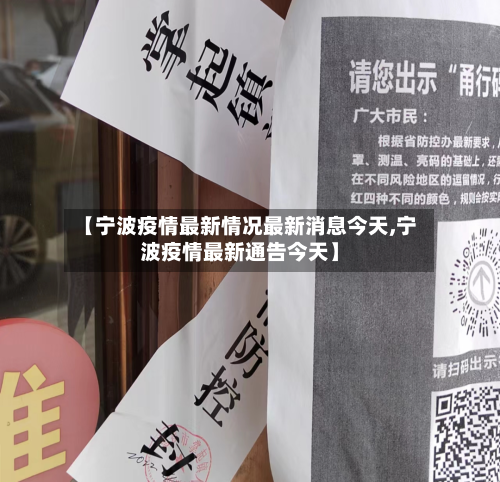 掌起镇
请您出示“甬行码
广大市民：
根据省防控办最新要求，
罩、测温、亮码的基础上，还
在不同风险地区的逗留情况，行
红四种不同的颜色，规则会按实
【宁波疫情最新情况最新消息今天,宁
波疫情最新通告今天】
防控
封
请扫码出示
准